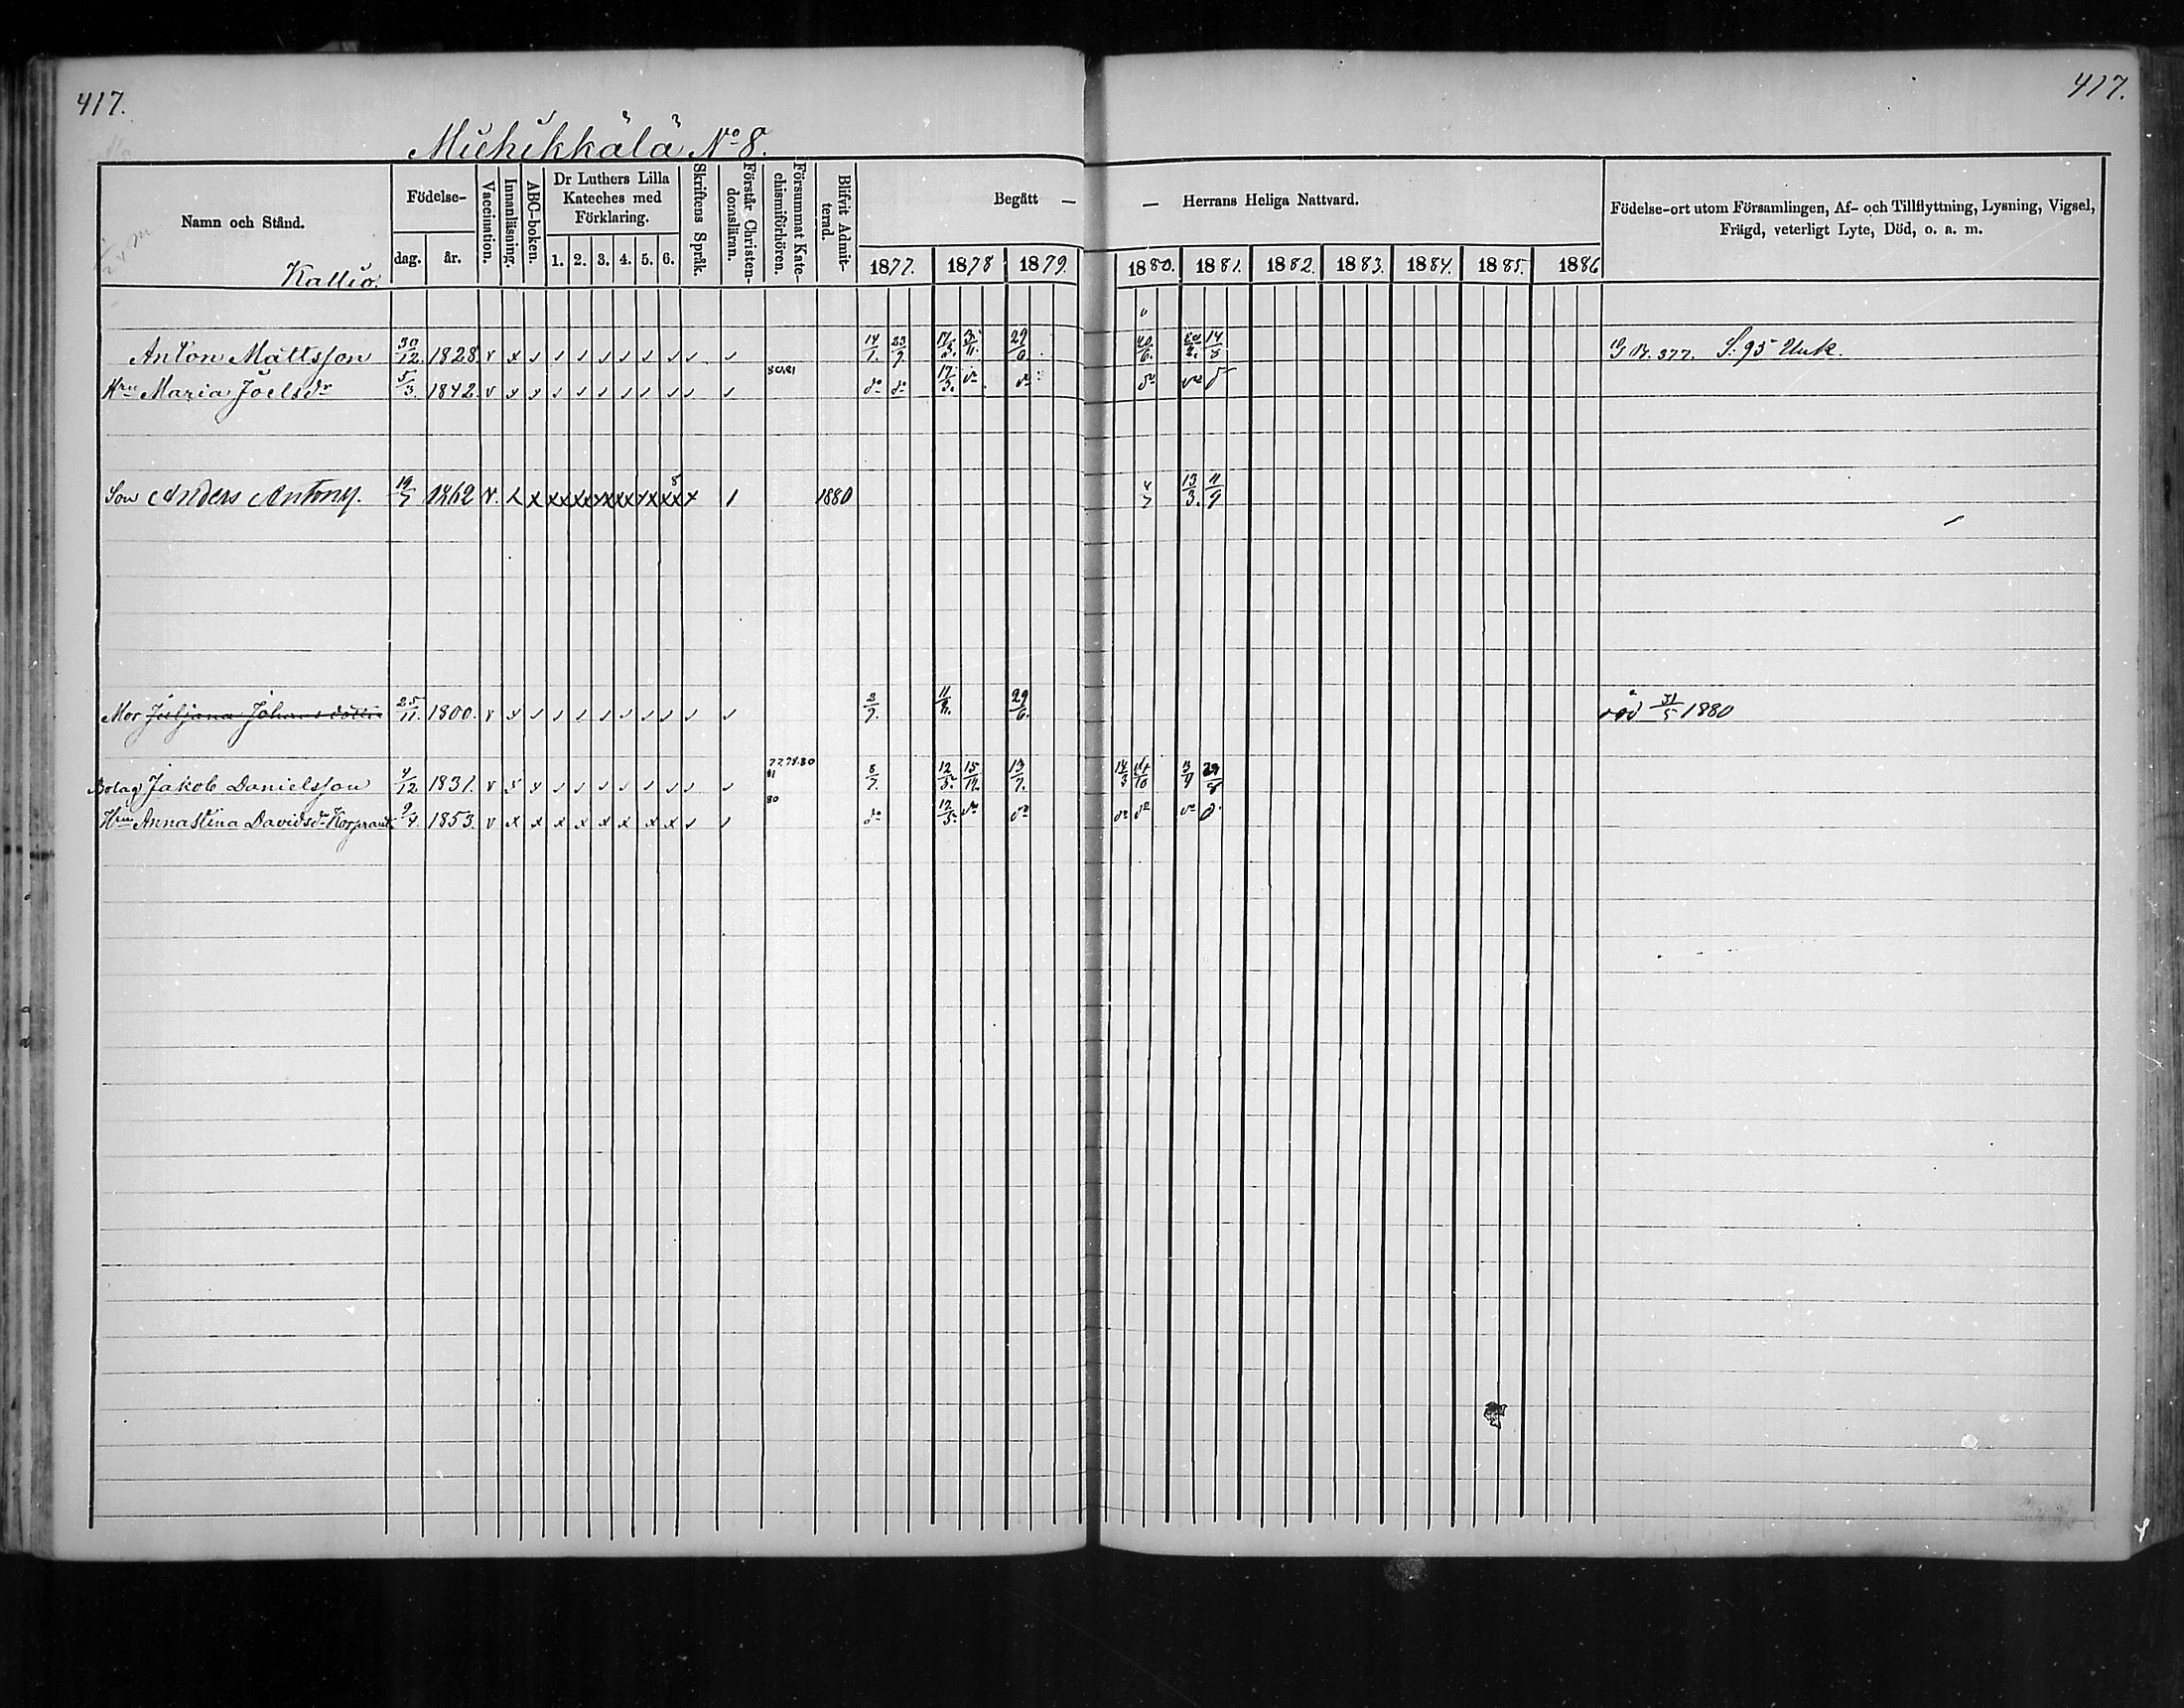 417. 417.
Miehikkälä No 8.
Namn och Stånd. Födelse- Vaccination. Innanläsning. ABC-boken. Dr Luthers Lilla Kateches med Förklaring. Skriftens Språk. Förstår Christendomsläran. Försummat Katechismiförhören. Blifvit Admitterad. Begått — — Herrans Heliga Nattvard. Födelse-ort utom Församlingen, Af- och Tillflyttning, Lysning, Vigsel, Frägd, veterligt Lyte, Död, o. a. m.
dag. år. 1. 2. 3. 4. 5. 6. 1877. 1878 1879. 1880. 1881. 1882. 1883. 1884. 1885. 1886
Kallio.
Anton Mattsson 30/12. 1828. v x 14/1. 23/9. 17/3. 3/11. 29/6. 20/6. 14/5 377. S. 95
80.81
Hru Maria Joelsdr 5/3. 1842. v do do 17/3. do do do do do
Son Anders Antony. 19/7 1862 v. x x 8 1880 4/7 13/3. 11/9
Mor Juljana Johansdotter 25/11. 1800. v 2/9. 11/8. 29/6. död 31/5 1880
77.78.80 81
Bolag Jakob Danielsson 4/12 1831. v 8/7. 12/5. 15/12. 13/7. 14/3 3/4 29/8
80
Hru Anna Stina Davidsdr 9/4. 1853. v x x x x x x x x do 12/5. do do do do do do